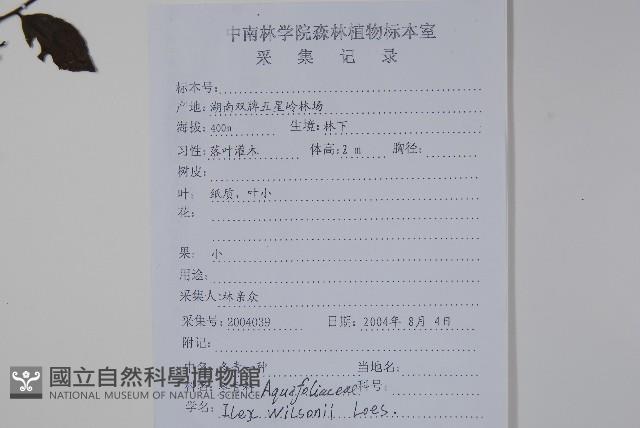 中南林学院森林植物标本室
采集记录
标本号:
产地:湖南双牌五星岭林场
海拔:400m 生境:林下
习性:落叶灌木 体高:2 m 胸径:
树皮:
叶: 纸质，叶小
花:
果: 小
用途:
采集人:林亲众
采集号:2004039 日期:2004年 8月 4日
附记:
中名: 一种 当地名:
Aquafoliaceae 科号:
学名: Ilex Wilsonii Loes.
國立自然科學博物館
NATIONAL MUSEUM OF NATURAL SCIENCE